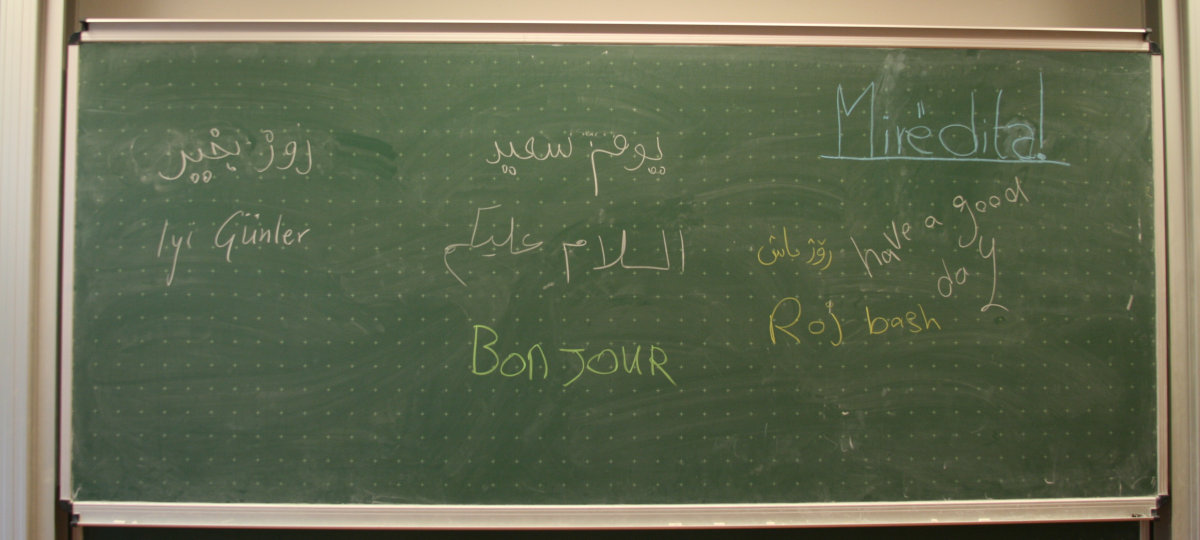 روز بخیر
Iyi Günler
يوم سعيد
السلام عليكم
BonJOUR
Mirëdita!
have a good
day
رۆژ باش
Roj bash